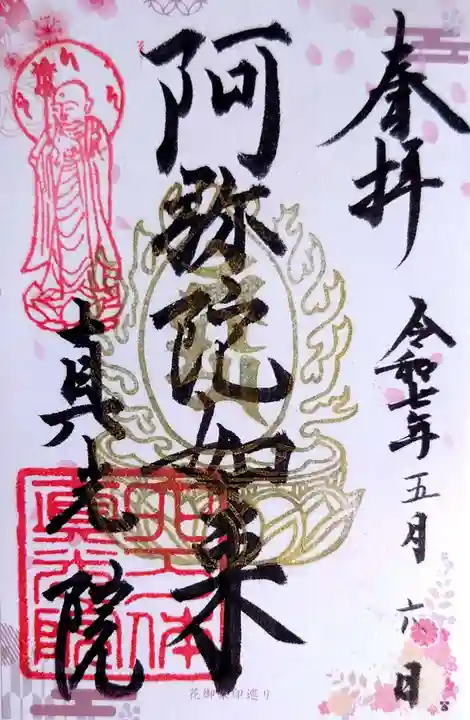 奉拝
令和七年五月六日
阿弥陀如来
真光院
花御朱印巡り